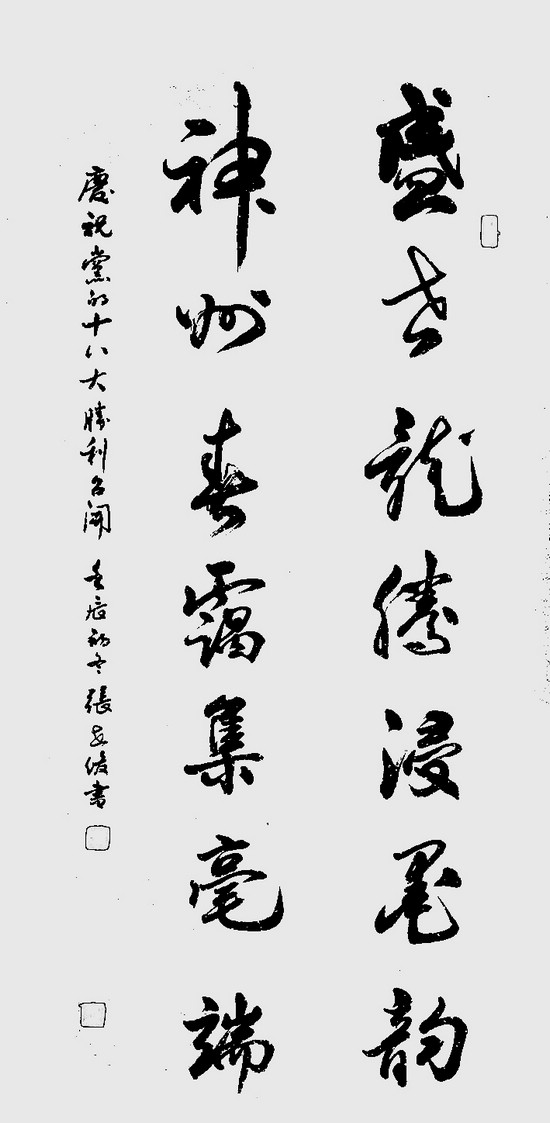 盛世龍腾浸墨韵
神州春靄集毫端
慶祝黨的十八大勝利召開 壬辰初冬張安俊書